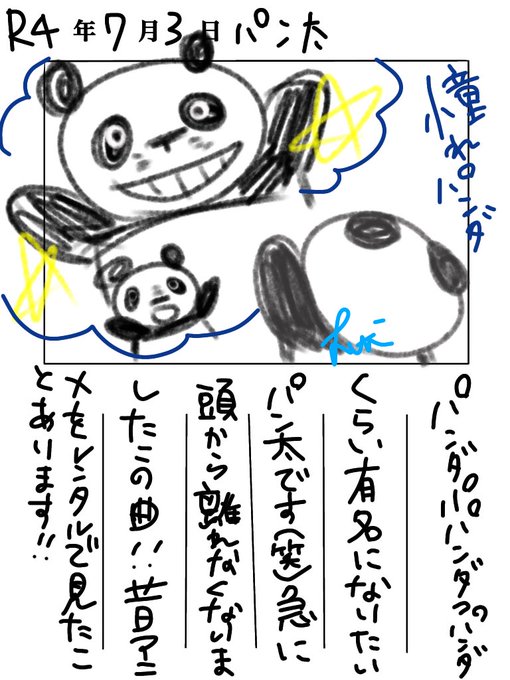 R4年7月3日パン太
憧れのパンダ
パンダパパンダのパンダ
くらい有名になりたい
パン太です(笑)急に
頭から離れなくなりま
したこの曲!!昔アニ
メをレンタルで見たこ
とあります!!